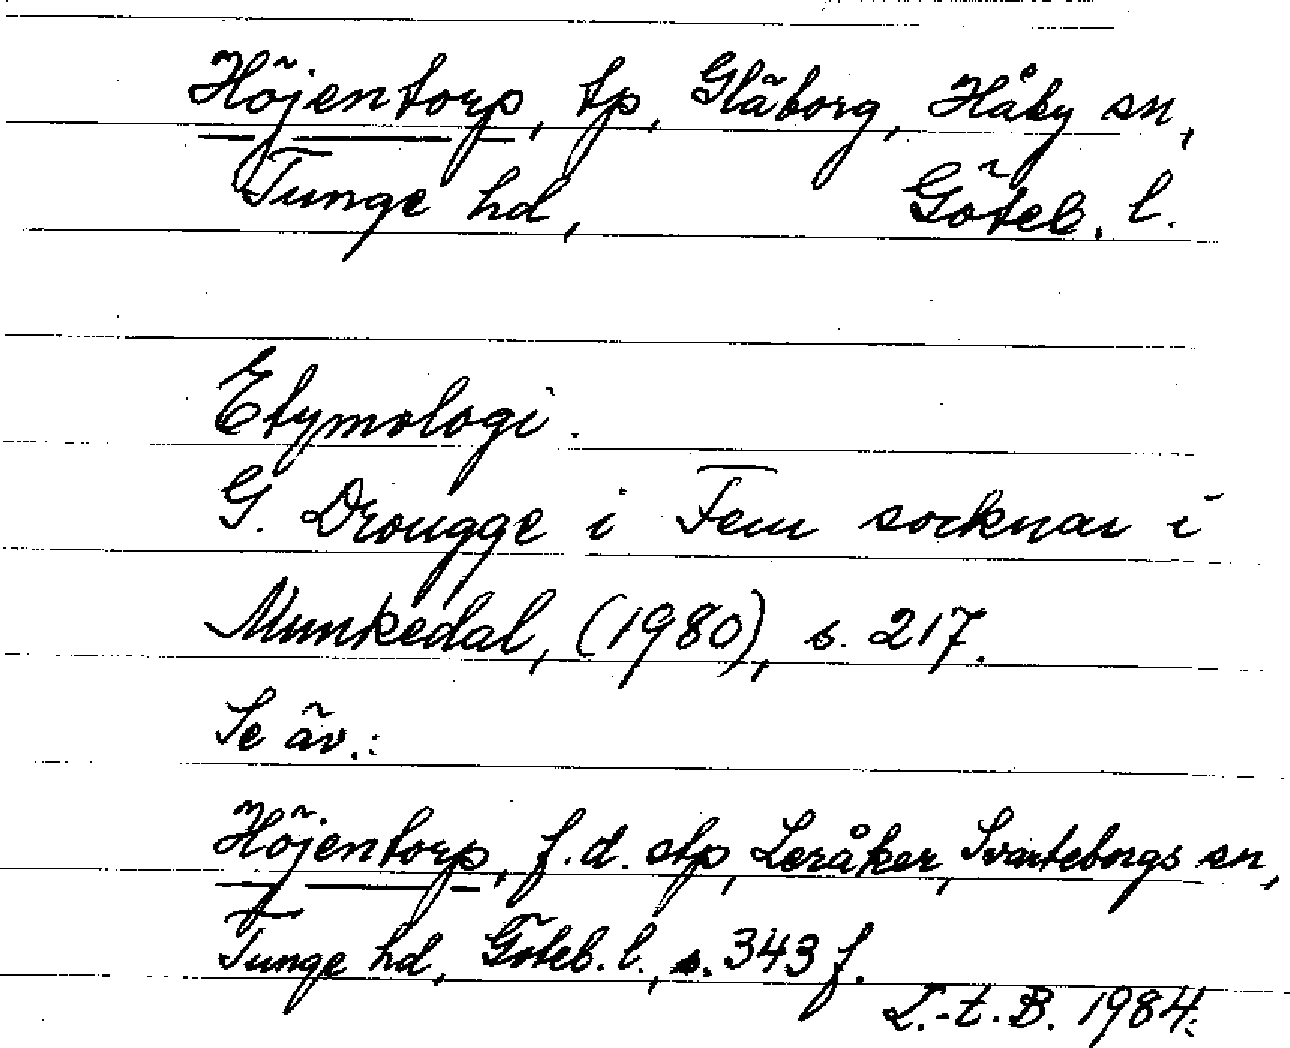 Höjentorp, tp, Glåborg, Håby sn,
Tunge hd, Göteb. l.
Etymologi.
G. Drougge i Fem socknar i
Munkedal, (1980), s. 217.
Se äv.:
Höjentorp, f.d. stp, Leråker, Svarteborgs sn,
Tunge hd, Göteb. l., s. 343 f.
L.-t. B. 1984.